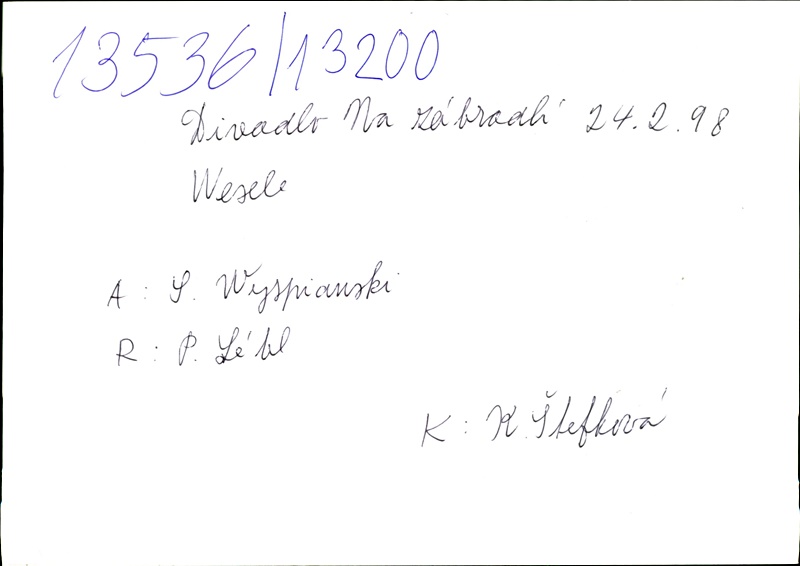 13536/13200
Divadlo Na zábradlí 24.2.98
Wesele
A: S. Wyspianski
R: P. Lébl
K: K. Štefková